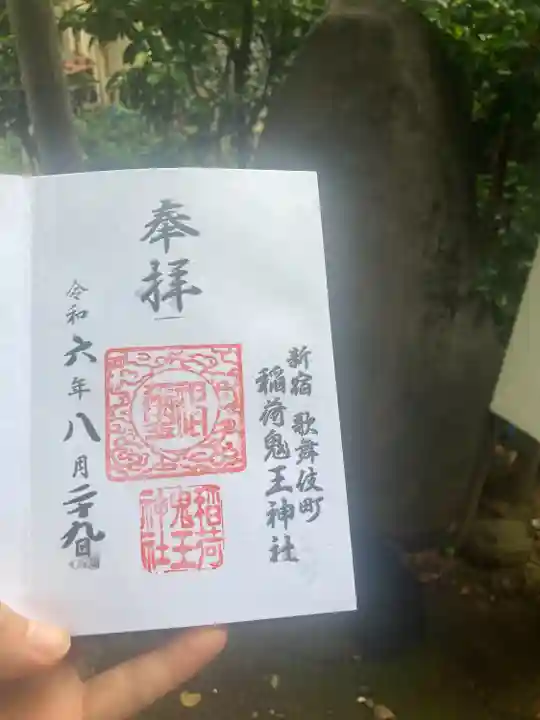 奉拝
新宿 歌舞伎町
稲荷鬼王神社
稲荷
鬼王
神社
令和六年八月二十九日